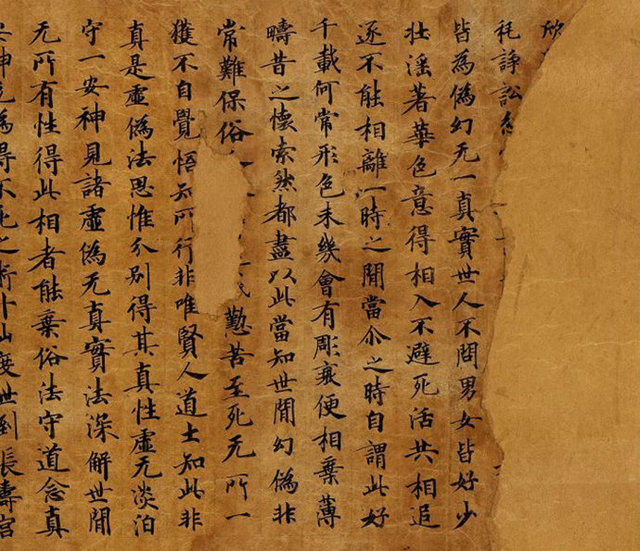 欣
秏諍訟
皆為偽幻无一真實世人不問男女皆好少
壯婬著華色意得相入不避死活共相追
逐不能相離一時之間當尒之時自謂此好
千載何常形色未幾會有彫衰便相棄薄
疇昔之懷索然都盡以此當知世間幻偽非
常難保俗民懃苦至死无所一
獲不自覺悟知所行非唯賢人道士知此非
真是虛偽法思惟分別得其真性虛无淡泊
守一安神見諸虛偽无真實法深解世間
无所有性得此相者能棄俗法守道念真
神為得不死之術升仙度世到長壽宮